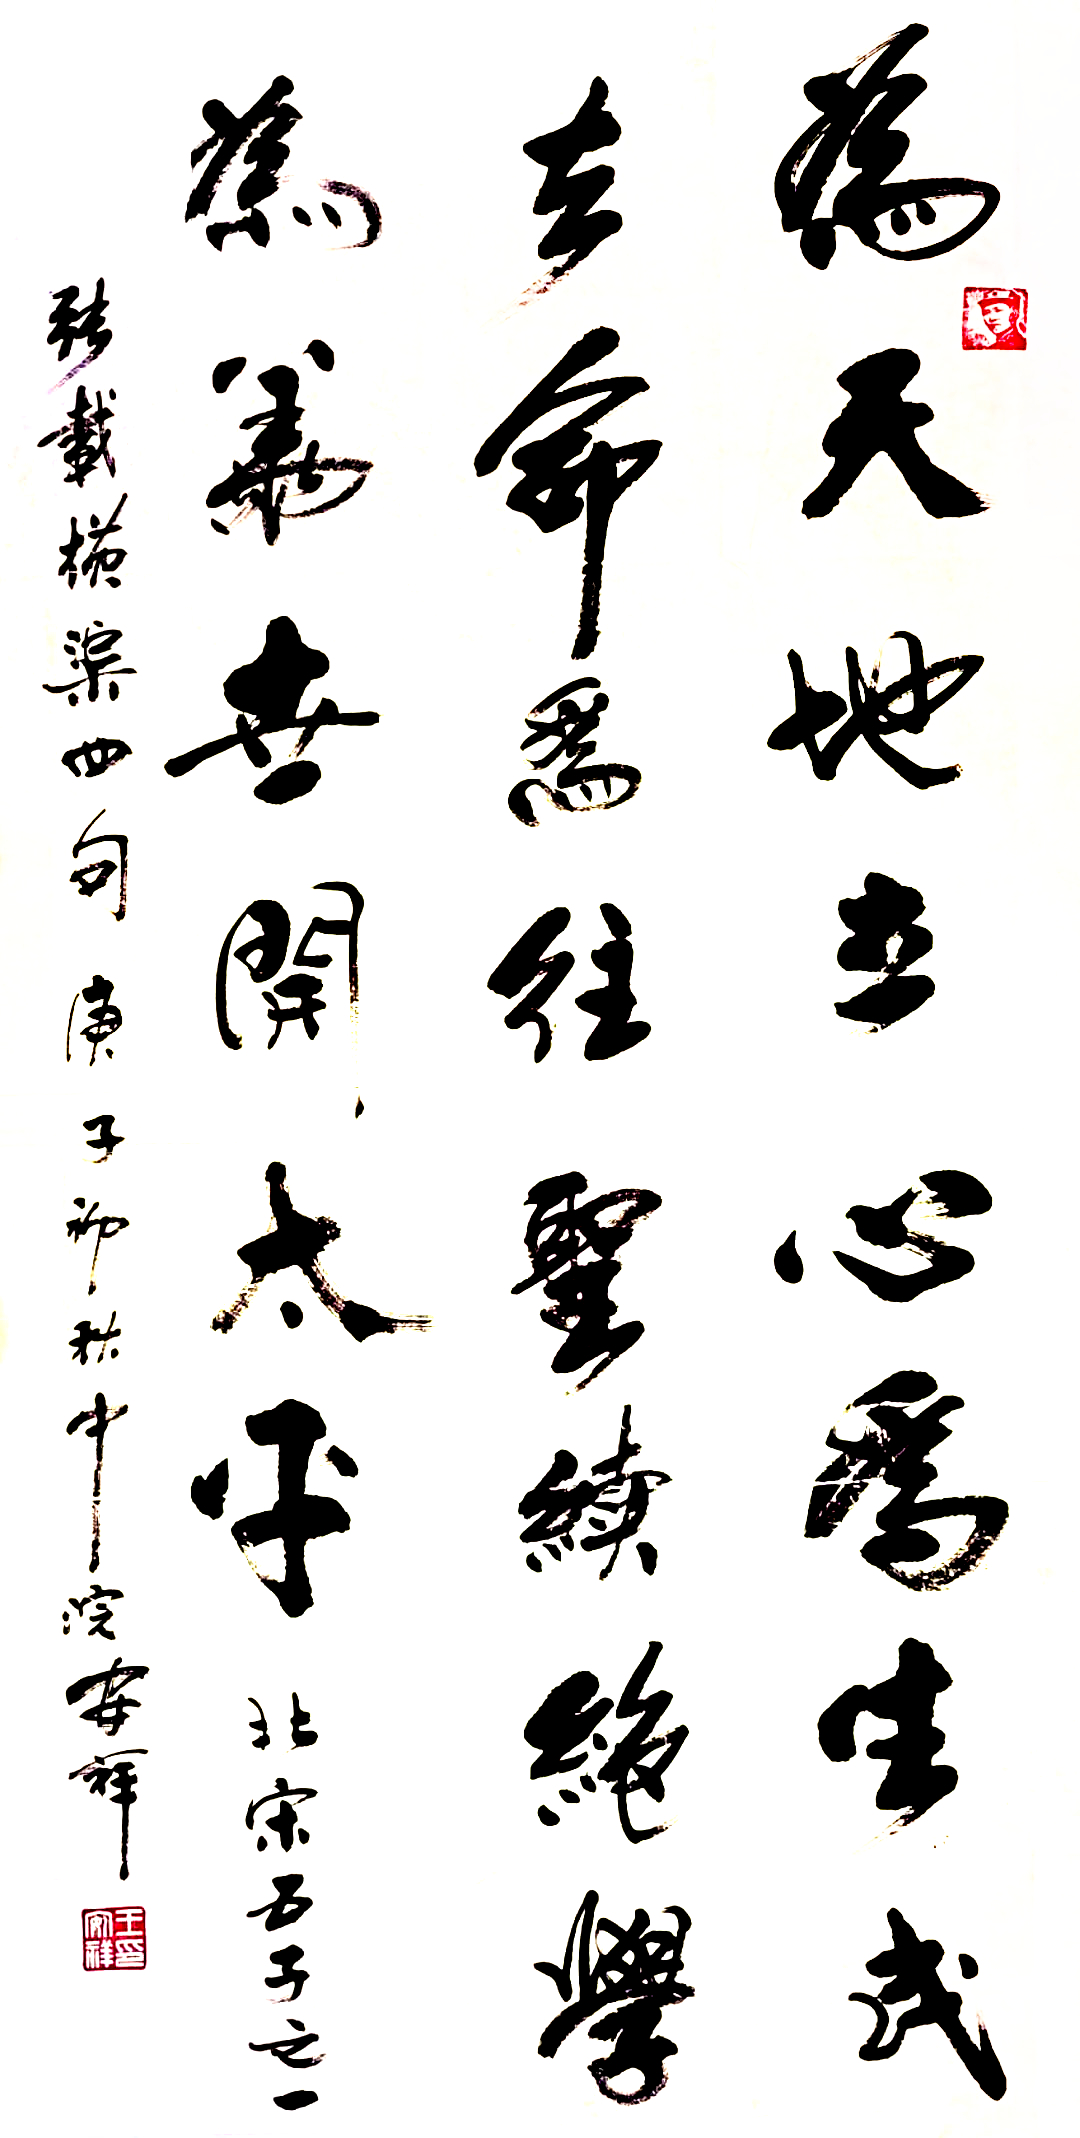 為天地立心為生民
立命為往聖繼絕學
為萬世開太平 北宋五子之一
張載橫渠四句 庚子初秋中浣安祥
王安祥印